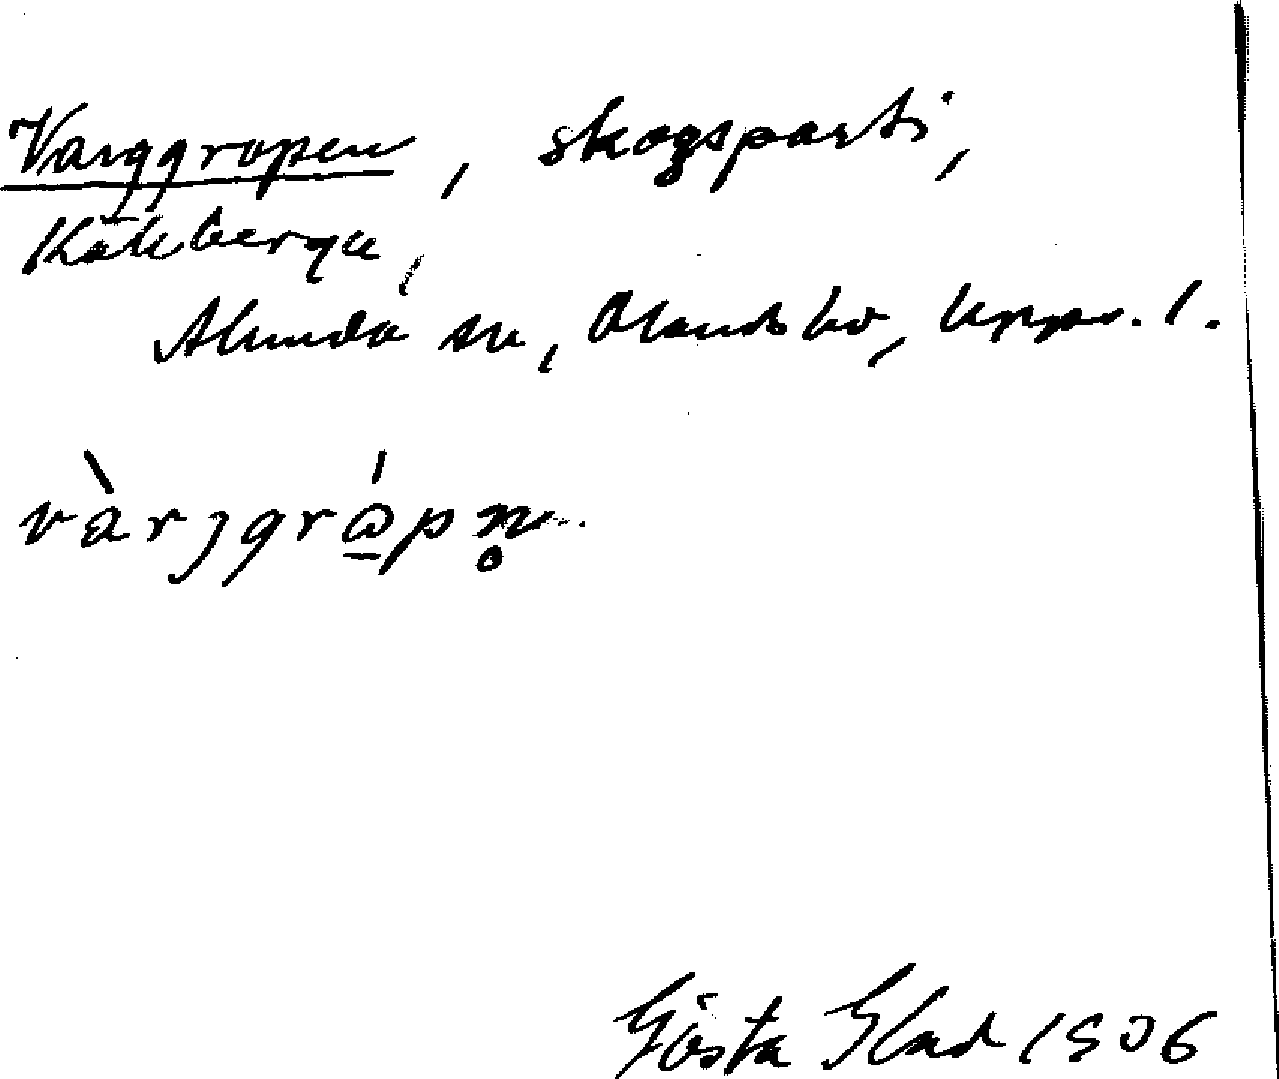 Varggropen, skogsparti,
Kåkberga,
Alunda sn, Olands hd, Upps. l.
vàrjgrápn̥
Gösta 1906